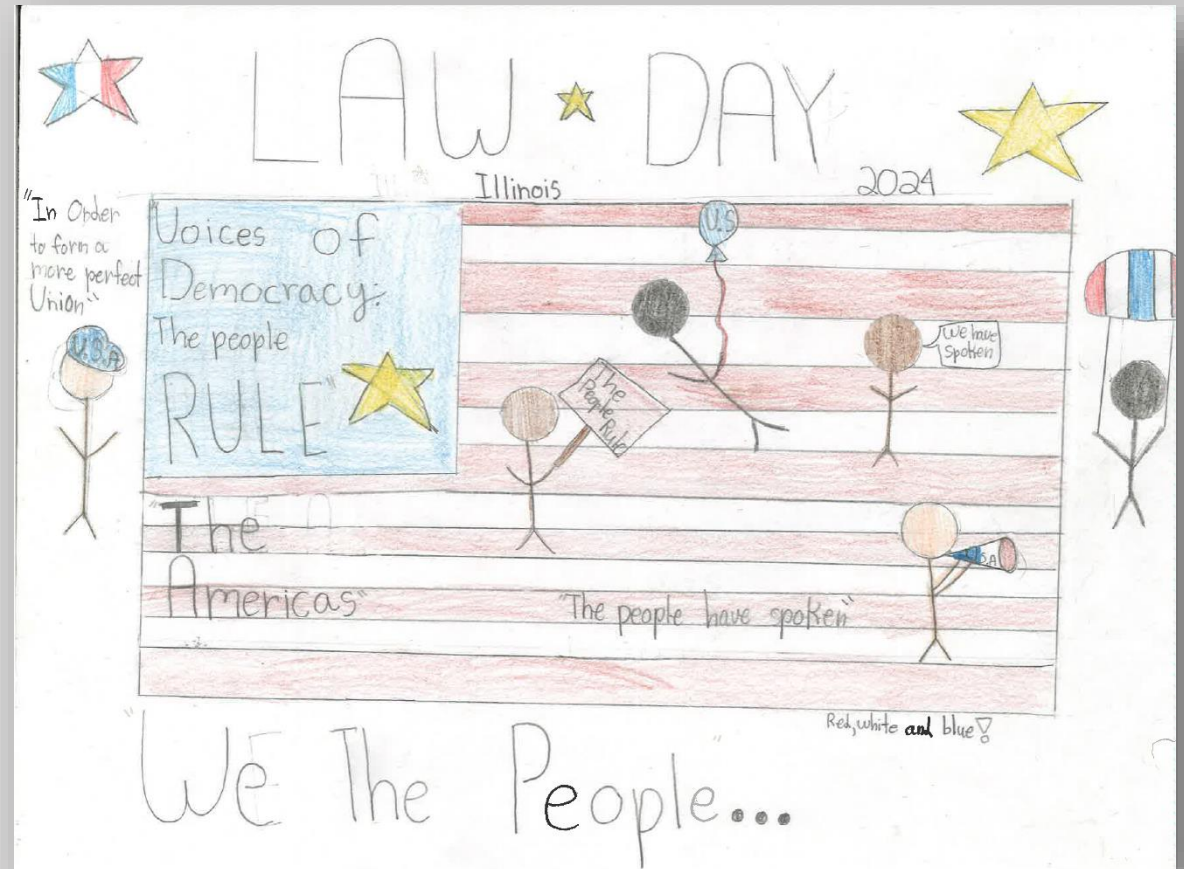 LAW DAY
Illinois
2024
"In Order
to form a
more perfect
Union"
U.S.A
"Voices of
Democracy:
The people
RULE"
U.S
We have
spoken
The
People
Rule
"The
Americas"
"The people have spoken"
Red, white and blue!
"WE The People...